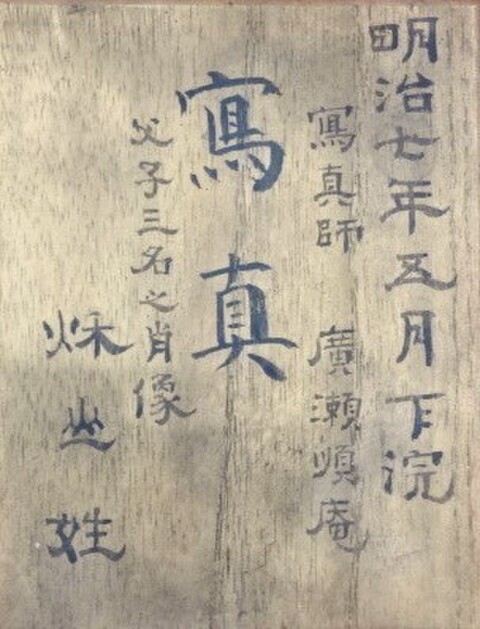 明治七年五月下浣
寫真師 廣瀬順庵
寫真
父子三名之肖像
秌山姓